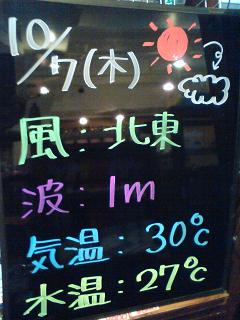 10/7(木)
風:北東
波:1m
気温:30℃
水温:27℃